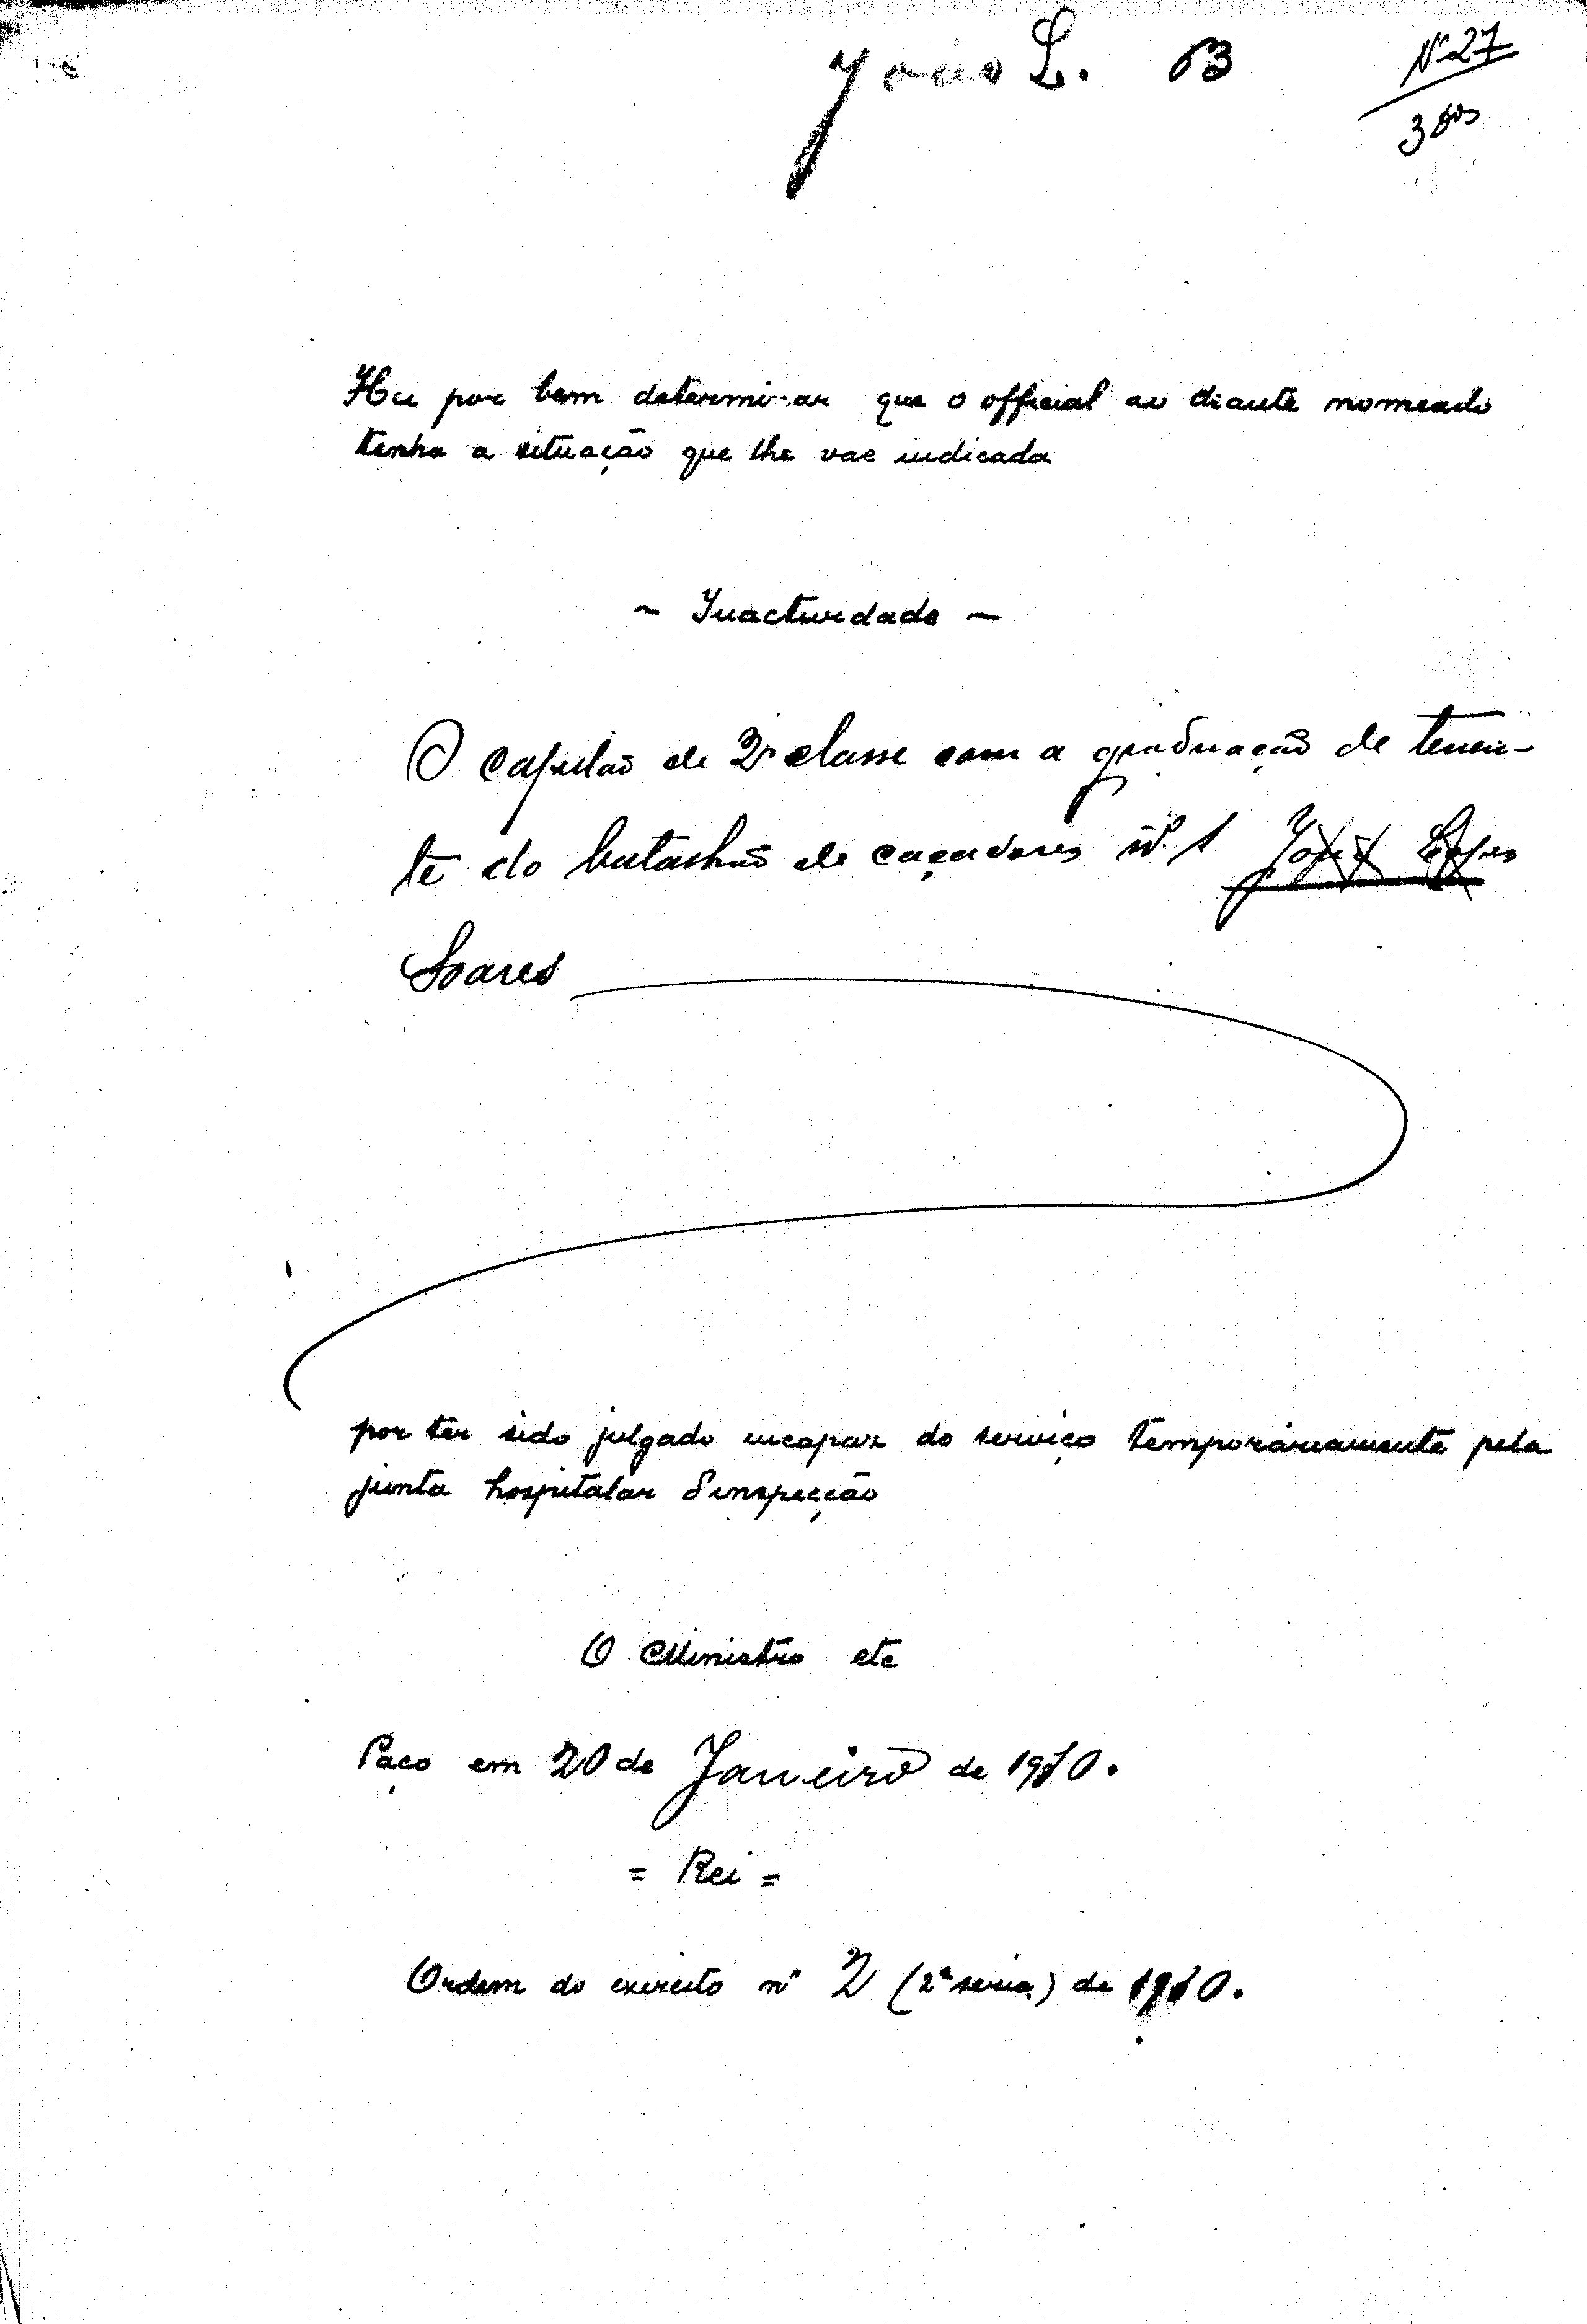 João L. B
Nº 27
3
Hei por bem determinar que o official ao diante nomeado
tenha a situação que lhe vae indicada
- Inactividade -
O capelão de 2ª classe com a graduação de tenen-
te do batalhão de caçadores nº. 1 Lopes
Soares
por ter sido julgado incapaz do serviço temporáriamente pela
junta hospitalar d'inspecção
O Ministro etc
Paço em 20 de Janeiro de 1910.
= Rei =
Ordem do exercito nº 2 (2ª serie) de 1910.